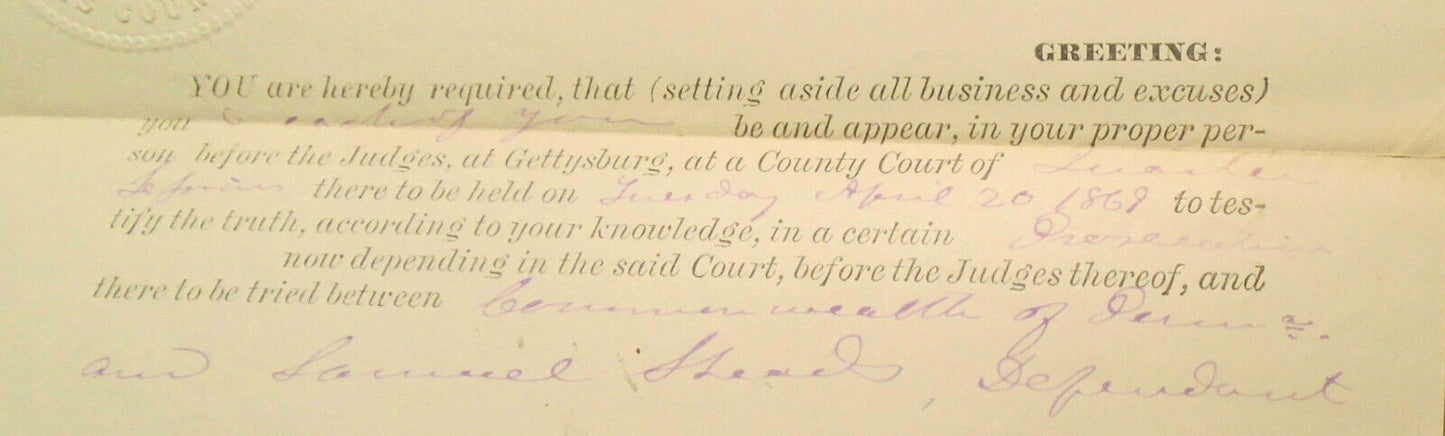 COUR
GREETING:
YOU are hereby required, that (setting aside all business and excuses)
you & each of you be and appear, in your proper per-
son before the Judges, at Gettysburg, at a County Court of Quarter
Sessions there to be held on Tuesday April 20 1869 to tes-
tify the truth, according to your knowledge, in a certain Prosecution
now depending in the said Court, before the Judges thereof, and
there to be tried between Commonwealth of Penna.
and Samuel Sheads, Defendant